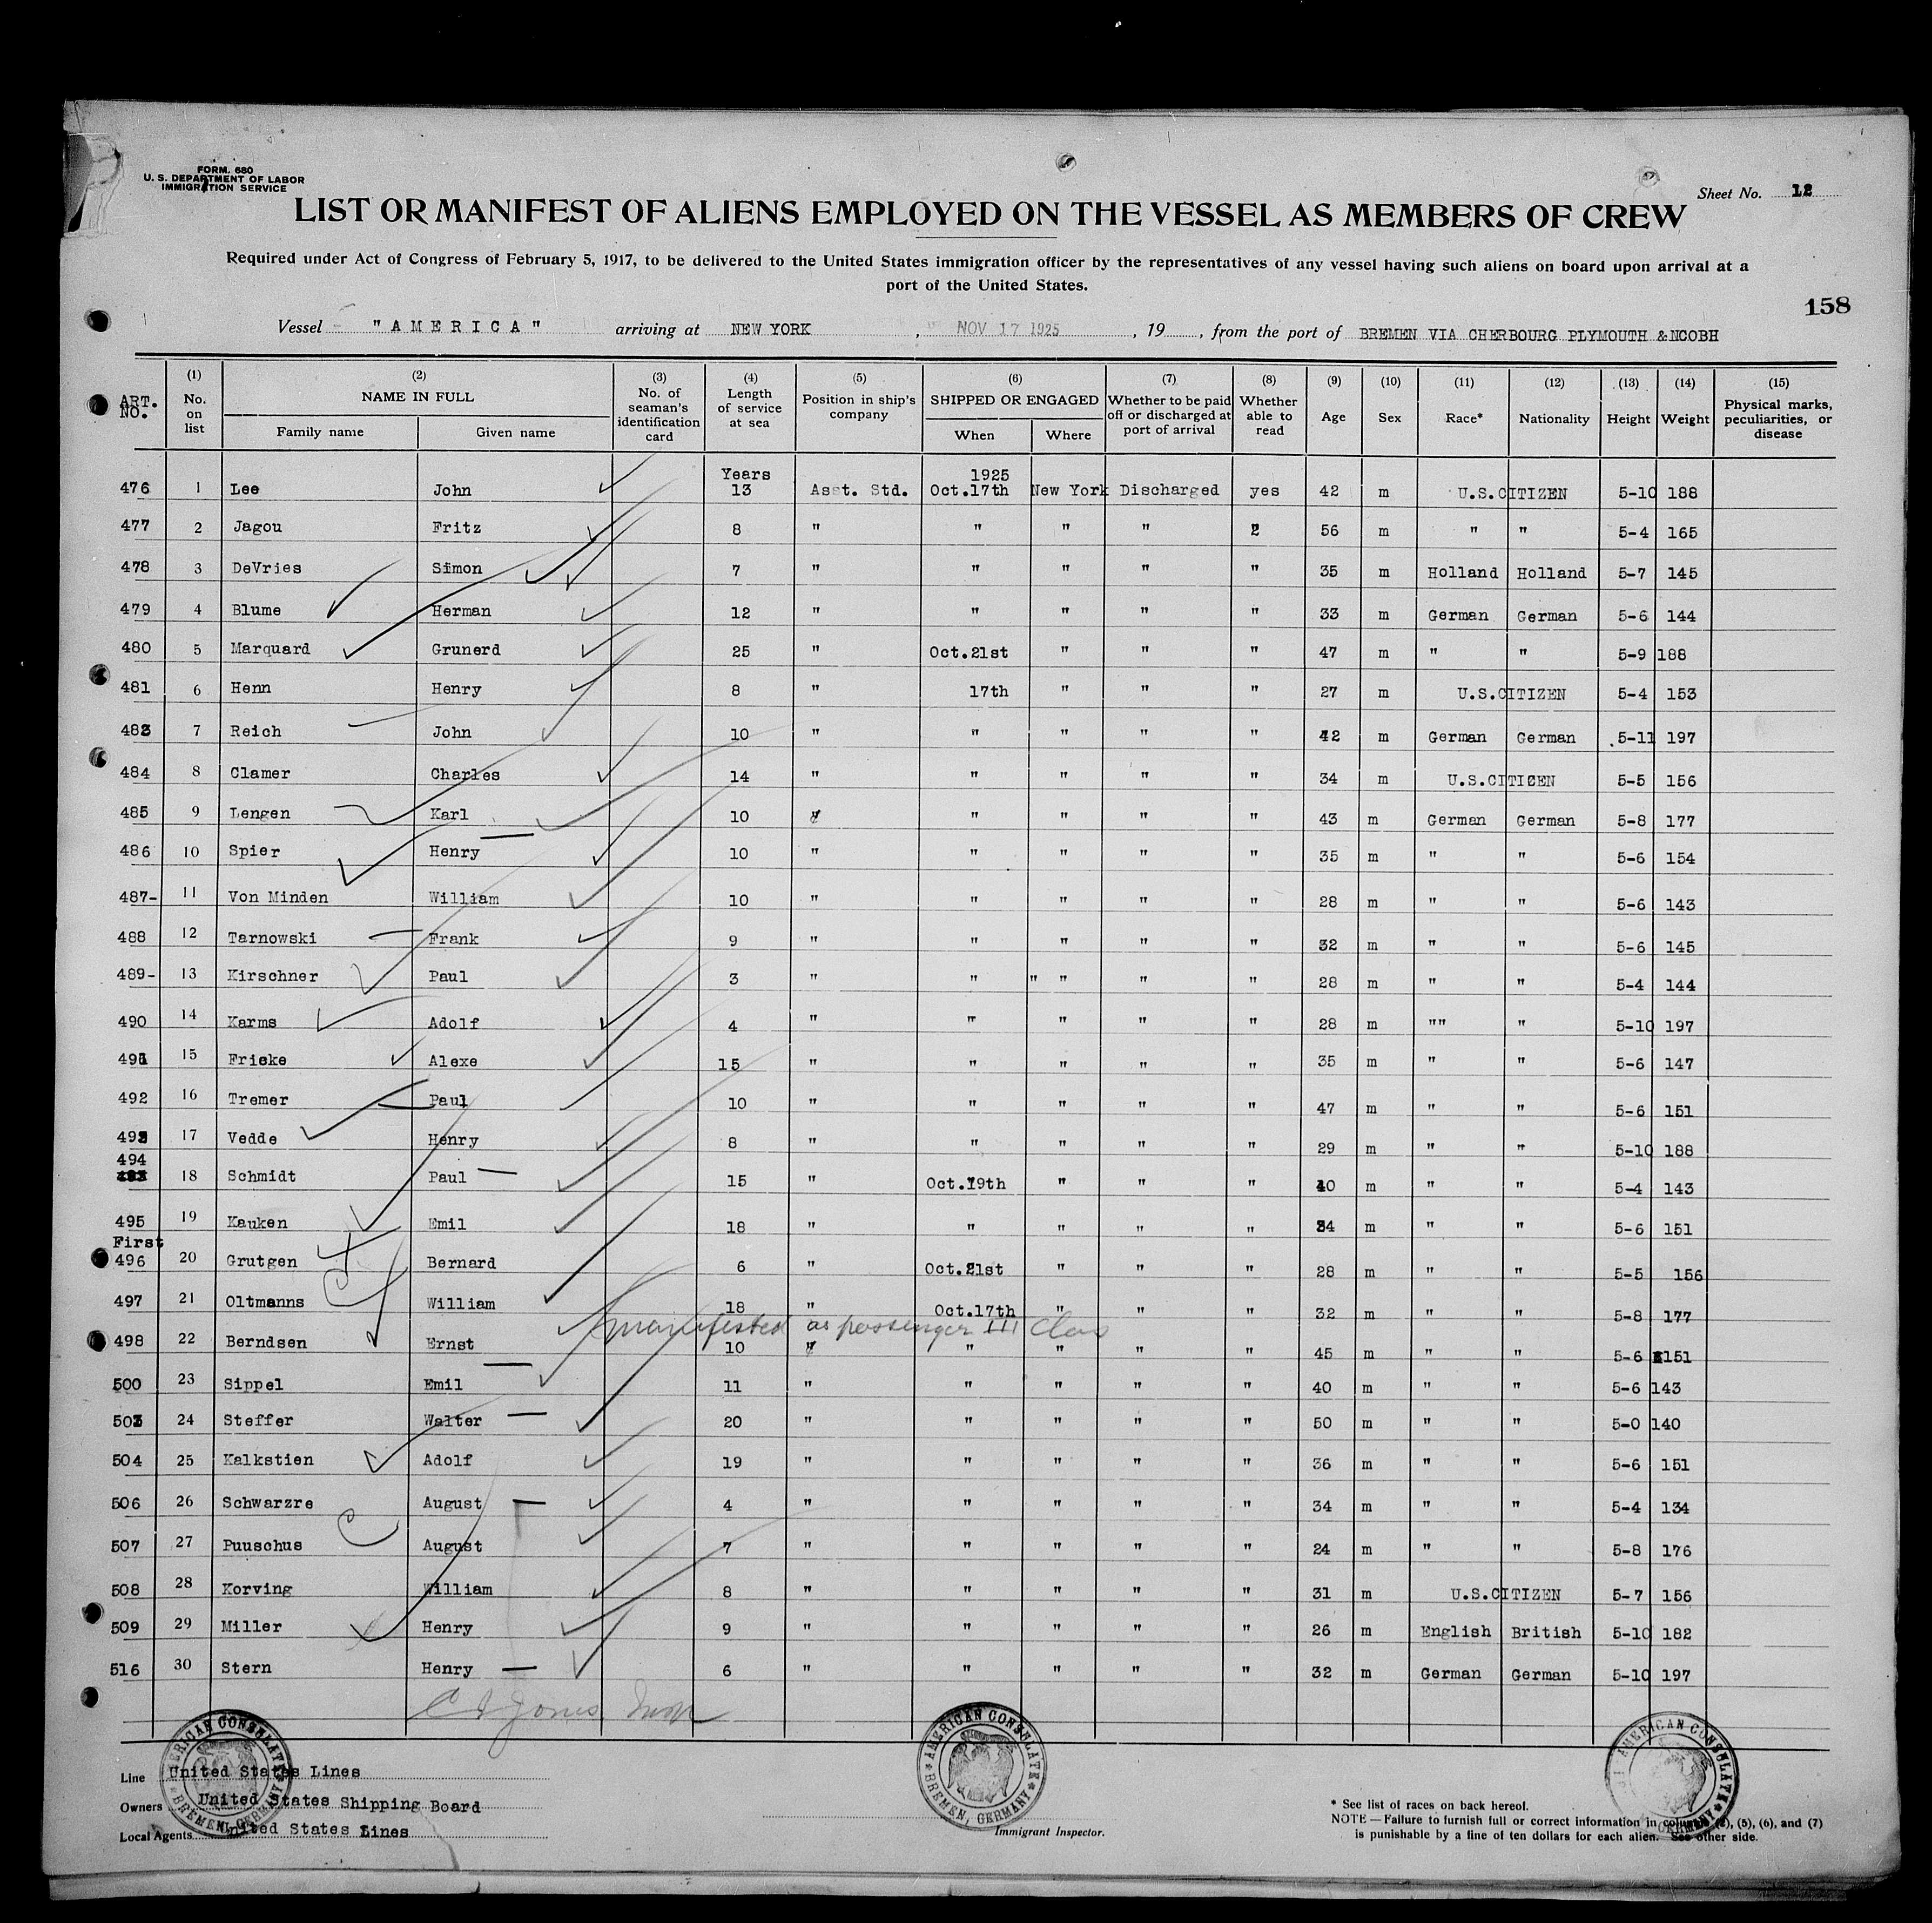 FORM. 680
U. S. DEPARTMENT OF LABOR
IMMIGRATION SERVICE
Sheet No. 12
LIST OR MANIFEST OF ALIENS EMPLOYED ON THE VESSEL AS MEMBERS OF CREW
Required under Act of Congress of February 5, 1917, to be delivered to the United States immigration officer by the representatives of any vessel having such aliens on board upon arrival at a
port of the United States.
158
Vessel "AMERICA" arriving at NEW YORK, NOV 17 1925, 19, from the port of BREMEN VIA CHERBOURG PLYMOUTH &NCOBH
ART. NO. (1) No. on list (2) NAME IN FULL Family name Given name (3) No. of seaman's identification card (4) Length of service at sea (5) Position in ship's company (6) SHIPPED OR ENGAGED When Where (7) Whether to be paid off or discharged at port of arrival (8) Whether able to read (9) Age (10) Sex (11) Race* (12) Nationality (13) Height (14) Weight (15) Physical marks, peculiarities, or disease
Years 1925
476 1 Lee John 13 Asst. Std. Oct.17th New York Discharged yes 42 m U.S.CITIZEN 5-10 188
477 2 Jagou Fritz 8 " " " " 2 56 m " " 5-4 165
478 3 DeVries Simon 7 " " " " " 35 m Holland Holland 5-7 145
479 4 Blume Herman 12 " " " " " 33 m German German 5-6 144
480 5 Marquard Grunerd 25 " Oct.21st " " " 47 m " " 5-9 188
481 6 Henn Henry 8 " 17th " " " 27 m U.S.CITIZEN 5-4 153
483 7 Reich John 10 " " " " " 42 m German German 5-11 197
484 8 Clamer Charles 14 " " " " " 34 m U.S.CITIZEN 5-5 156
485 9 Lengen Karl 10 " " " " " 43 m German German 5-8 177
486 10 Spier Henry 10 " " " " " 35 m " " 5-6 154
487- 11 Von Minden William 10 " " " " " 28 m " " 5-6 143
488 12 Tarnowski Frank 9 " " " " " 32 m " " 5-6 145
489- 13 Kirschner Paul 3 " " " " " " 28 m " " 5-4 144
490 14 Karms Adolf 4 " " " " " 28 m "" " 5-10 197
491 15 Fricke Alexe 15 " " " " " 35 m " " 5-6 147
492 16 Tremer Paul 10 " " " " " 47 m " " 5-6 151
493 17 Vedde Henry 8 " " " " " 29 m " " 5-10 188
494 18 Schmidt Paul 15 " Oct.19th " " " 40 m " " 5-4 143
495 19 Kauken Emil 18 " " " " " 34 m " " 5-6 151
First
496 20 Grutgen Bernard 6 " Oct.21st " " " 28 m " " 5-5 156
497 21 Oltmanns William 18 " Oct.17th " " " 32 m " " 5-8 177
manifested as passenger III Class
498 22 Berndsen Ernst 10 " " " " " 45 m " " 5-6 151
500 23 Sippel Emil 11 " " " " " 40 m " " 5-6 143
503 24 Steffer Walter 20 " " " " " 50 m " " 5-0 140
504 25 Kalkstien Adolf 19 " " " " " 36 m " " 5-6 151
506 26 Schwarzre August 4 " " " " " 34 m " " 5-4 134
507 27 Puuschus August 7 " " " " " 24 m " " 5-8 176
508 28 Korving William 8 " " " " " 31 m U.S.CITIZEN 5-7 156
509 29 Miller Henry 9 " " " " " 26 m English British 5-10 182
516 30 Stern Henry 6 " " " " " 32 m German German 5-10 197
Jones Insp
AMERICAN CONSULATE BREMEN, GERMANY
AMERICAN CONSULATE BREMEN, GERMANY
AMERICAN CONSULATE GERMANY
Line United States Lines
Owners United States Shipping Board
Local Agents United States Lines
Immigrant Inspector.
* See list of races on back hereof.
NOTE—Failure to furnish full or correct information in columns (2), (5), (6), and (7)
is punishable by a fine of ten dollars for each alien. See other side.